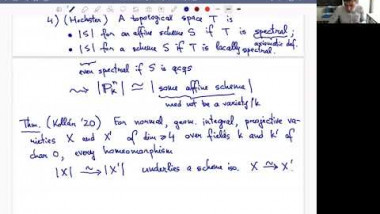 4) (Hochster) A topological space T is
• |S| for an affine scheme S if T is spectral,
axiomatic def.
• |S| for a scheme S if T is locally spectral.
even spectral if S is qcqs
⇝ |ℙⁿₖ| ≃ |some affine scheme|
need not be a variety/k
Thm. (Kollár '20) For normal, geom. integral, projective va-
rieties X and X' of dim ≥ 4 over fields k and k' of
char 0, every homeomorphism
|X| ⥲ |X'| underlies a scheme iso. X ⥲ X'.